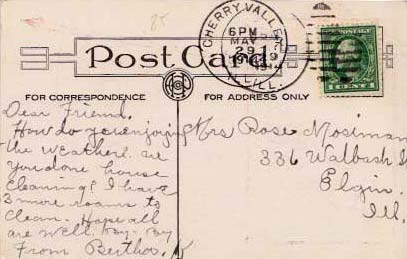 25
CHERRY VALLEY
6 PM
29
ILL.
Post Card
1 CENT 1
FOR CORRESPONDENCE
FOR ADDRESS ONLY
Dear Friend.
How do you enjoying
the weather. are
you done house
cleaning? I have
3 more rooms to
clean. Hope all
are well. By-By
From Bertha. K
Mrs Rose Mosiman
336 Walbash
Elgin.
Ill.